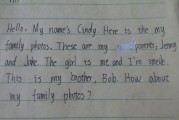 Hello. My name's Cindy Here is the my
family photos. These are my parents, Jenny
and Jake The girl is me and I'm
This is my brother, Bob. How about
my family photos?